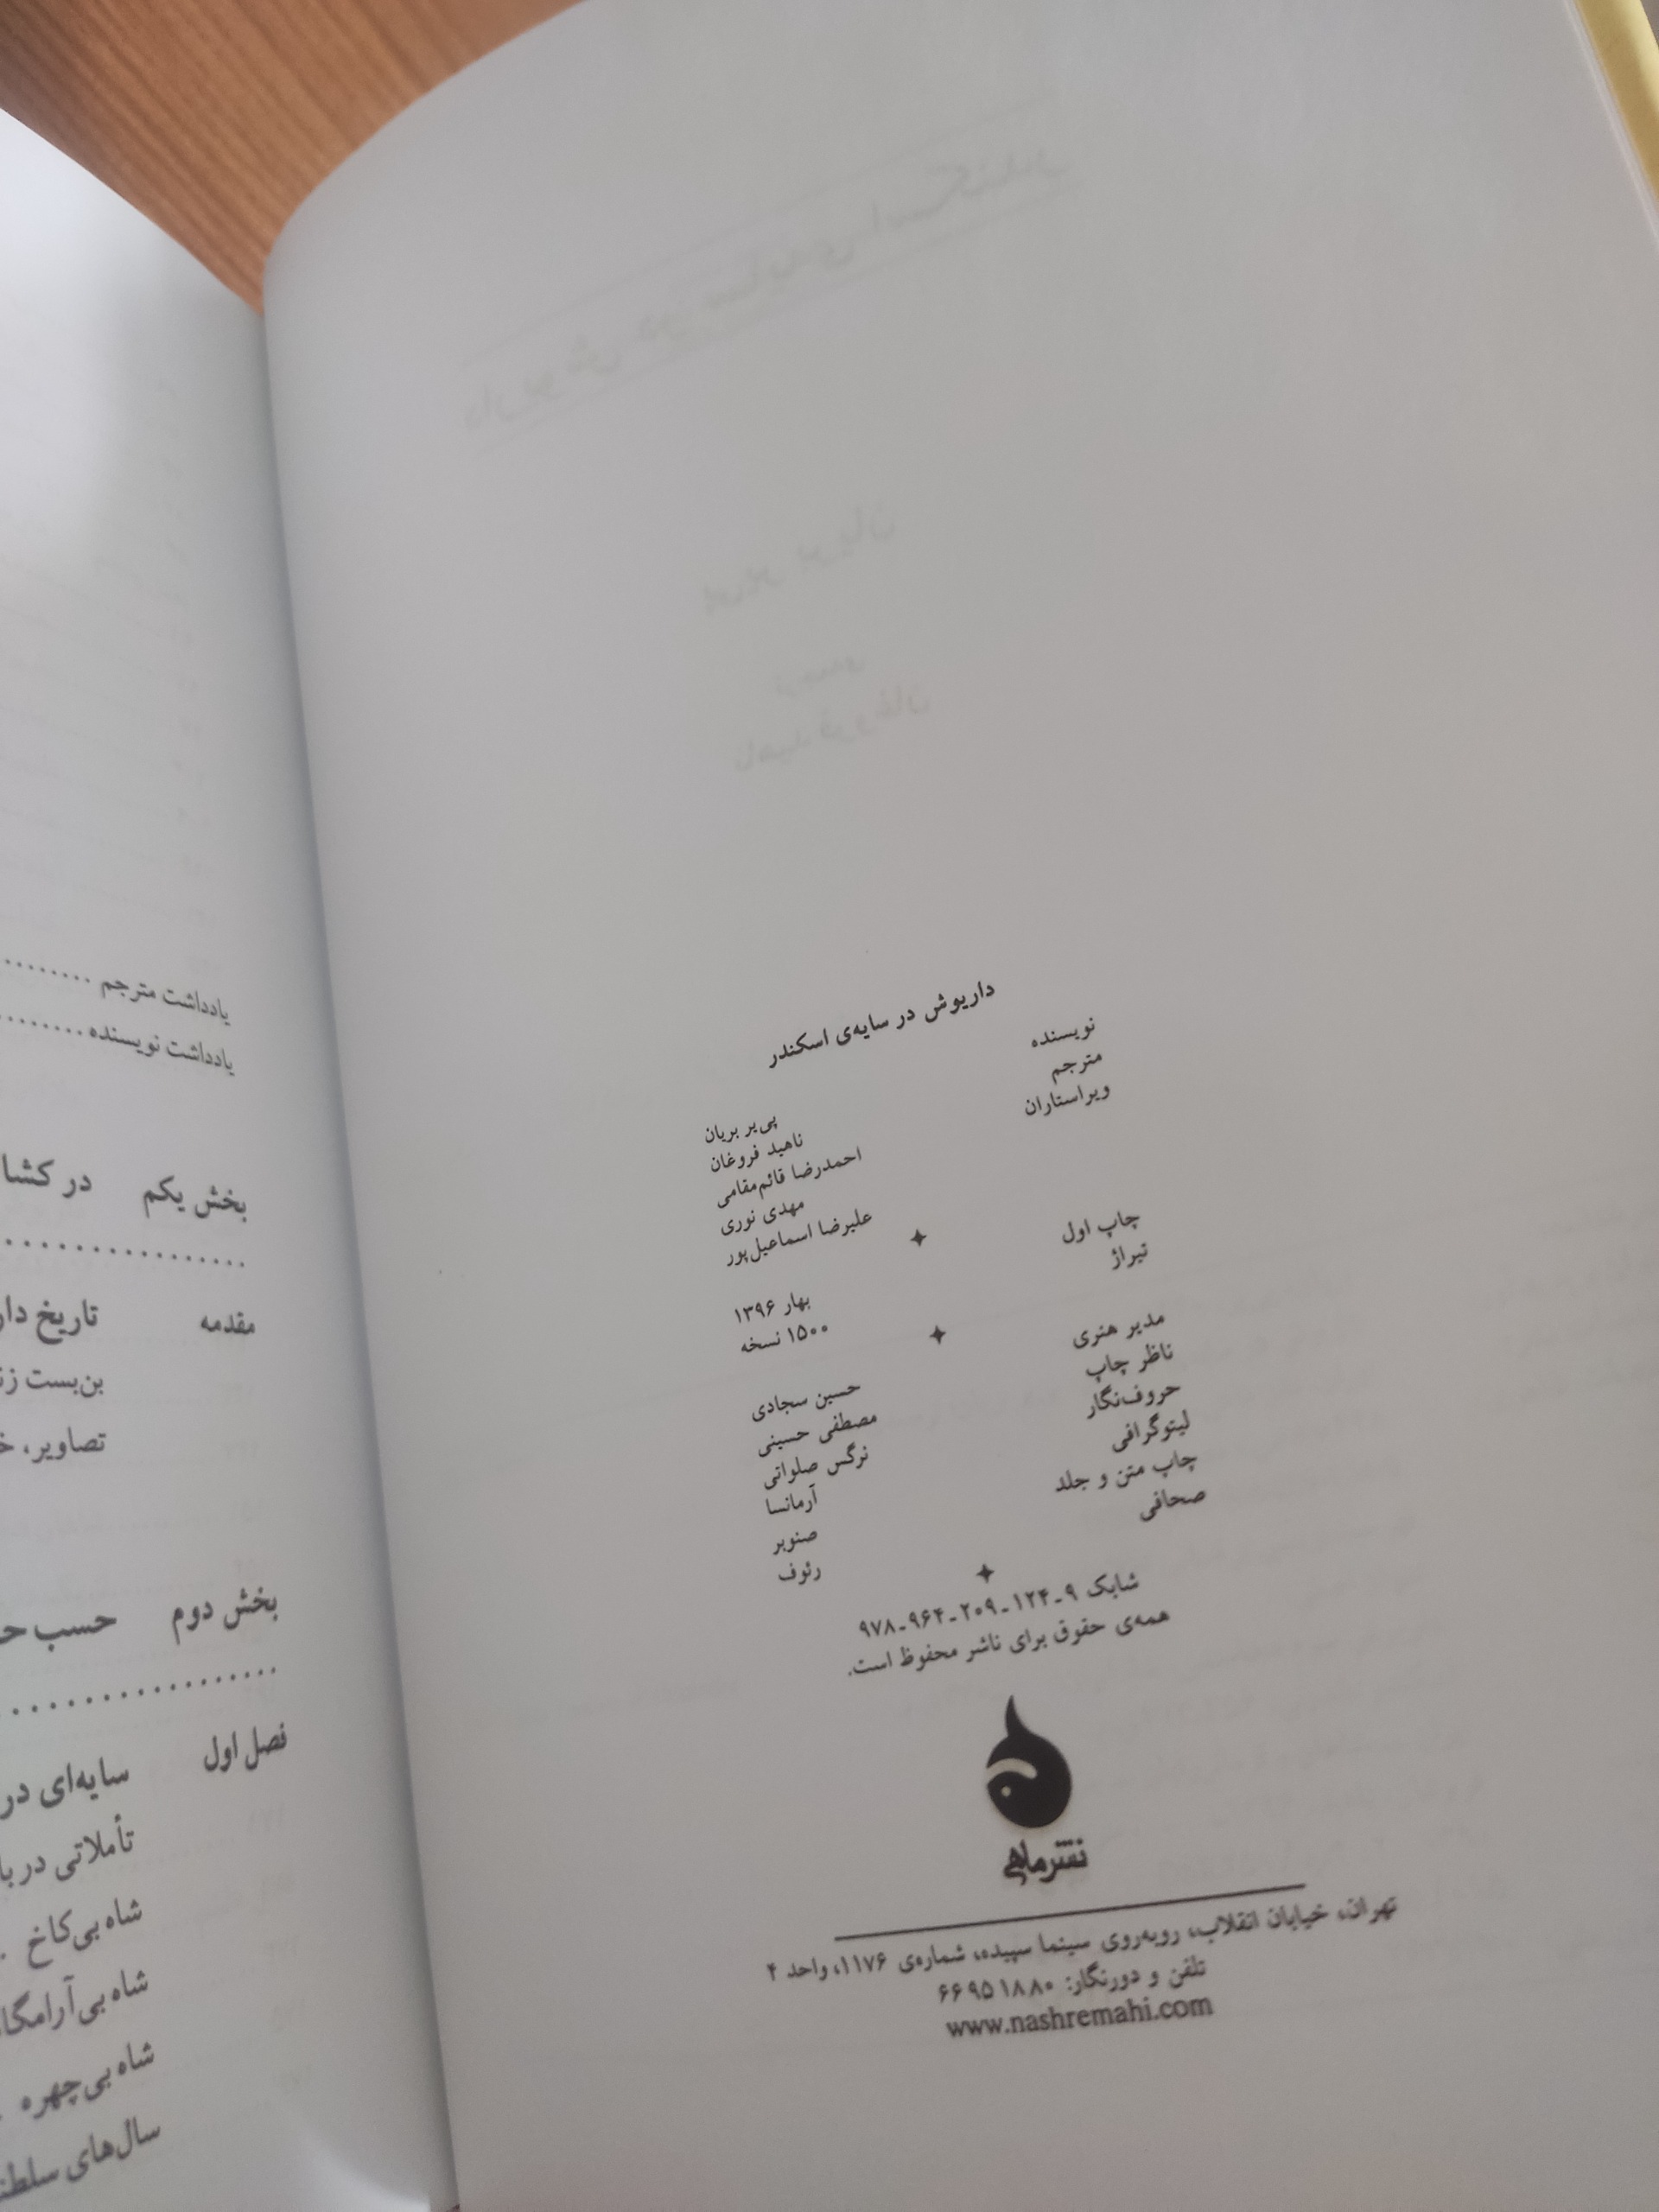 داریوش در سایه‌ی اسکندر
نویسنده پی‌یر بریان
مترجم ناهید فروغان
ویراستاران احمدرضا قائم‌مقامی
مهدی نوری
علیرضا اسماعیل‌پور
چاپ اول بهار ۱۳۹۶
تیراژ ۱۵۰۰ نسخه
مدیر هنری حسین سجادی
ناظر چاپ مصطفی حسینی
حروف‌نگار نرگس صلواتی
لیتوگرافی آرمانسا
چاپ متن و جلد صنوبر
صحافی رئوف
شابک ۹-۱۲۴-۲۰۹-۹۶۴-۹۷۸
همه‌ی حقوق برای ناشر محفوظ است.
نشر ماهی
تهران، خیابان انقلاب، روبه‌روی سینما سپیده، شماره‌ی ۱۱۷۶، واحد ۴
تلفن و دورنگار: ۶۶۹۵۱۸۸۰
www.nashremahi.com
یادداشت مترجم
یادداشت نویسنده
بخش یکم در
مقدمه تاریخ
بن‌بست
تصاویر،
بخش دوم حسب
فصل اول سایه‌ای در
تأملاتی در
شاه بی‌کاخ
شاه
شاه بی‌چهره
سال‌های